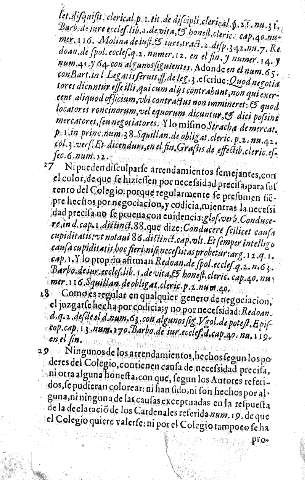 let. disquisit. clerical. p. 2. tit. de discipli. clerical. §. 25. nu. 31.
Barb. de iure eccles. lib. 1. de vita, & honest. cleric. cap. 40. nu-
mer. 116. Molina de iust. & iure tract. 2. disp. 342. nu. 7. Re-
doan. de spol. eccles. q. 2. numer. 12. en el fin, y numer. 14. y
num. 41. y 64. con algunos siguientes. Adonde en el num. 65.
con Bart. in l. Legatis seruis, ff. de leg. 3. escriue: Quod negotia
tores dicuntur esse illi, qui cum alijs contrahant, non qui exer-
cent aliquod officium, vbi contractus non imminet: & quod
locatores roncinorum, vel equorum dicuntur, & dici possint
mercatores, seu negotiatores. Y lo mismo Stracha de mercat.
p. 1. in princ. num. 38. Squillan. de obligat. cleric. p. 2. nu. 42.
col. 3. vers. Et dicendum, en el fin, Grastis de effectib. cleric. ef-
fec. 6. num. 12.
27 Ni pueden disculparse arrendamientos semejantes, con
el color, de que se hiziessen por necessidad precisa para sus
tento del Colegio: porque regularmente se presumen siẽ-
pre hechos por negociacion, y codicia, mientras la necessi
dad precisa no se prueua con euidencia: glos. verb. Conduce-
re, in d. cap. 2. distinct. 88. que dize: Conducere scilicet causa
cupiditatis vt not aui 86. distinct. cap. vlt. Et semper intelligo
causa cupiditatis, hoc fieri nisi necessitas probetur: arg. 12. q. 1.
cap. 1. Y lo proprio afirman Redoan. de spol. eccles. q. 2. n. 63.
Barbo. de iur. eccles. lib. 1. de vita, & honest. cleric. cap. 40. nu-
mer. 116. Squillan. de obligat. cleric. p. 2. num. 40.
28 Como es regular en qualquier genero de negociacion,
el juzgarse hecha por codicia, y no por necessidad: Redoan.
d. q. 2. desde al d. num. 63. con algunos sig. Vgol. de potest. Epis-
cop. cap. 13. num. 170. Barbo. de iur. eccles. d. cap. 40. nu. 119.
en el fin.
29 Ningunos de los arrendamientos, hechos segun los po
deres del Colegio, contienen causa de necessidad precisa,
ni otra alguna honesta, con que, segun los Autores referi-
dos, se pudieran colorear: ni han sido, ni son hechos por al-
guna, ni ninguna de las causas exceptuadas en la respuesta
de la declaraciõ de los Cardenales referida num. 19. de que
el Colegio quiere valerse: ni por el Colegio tampoco se ha
pro-